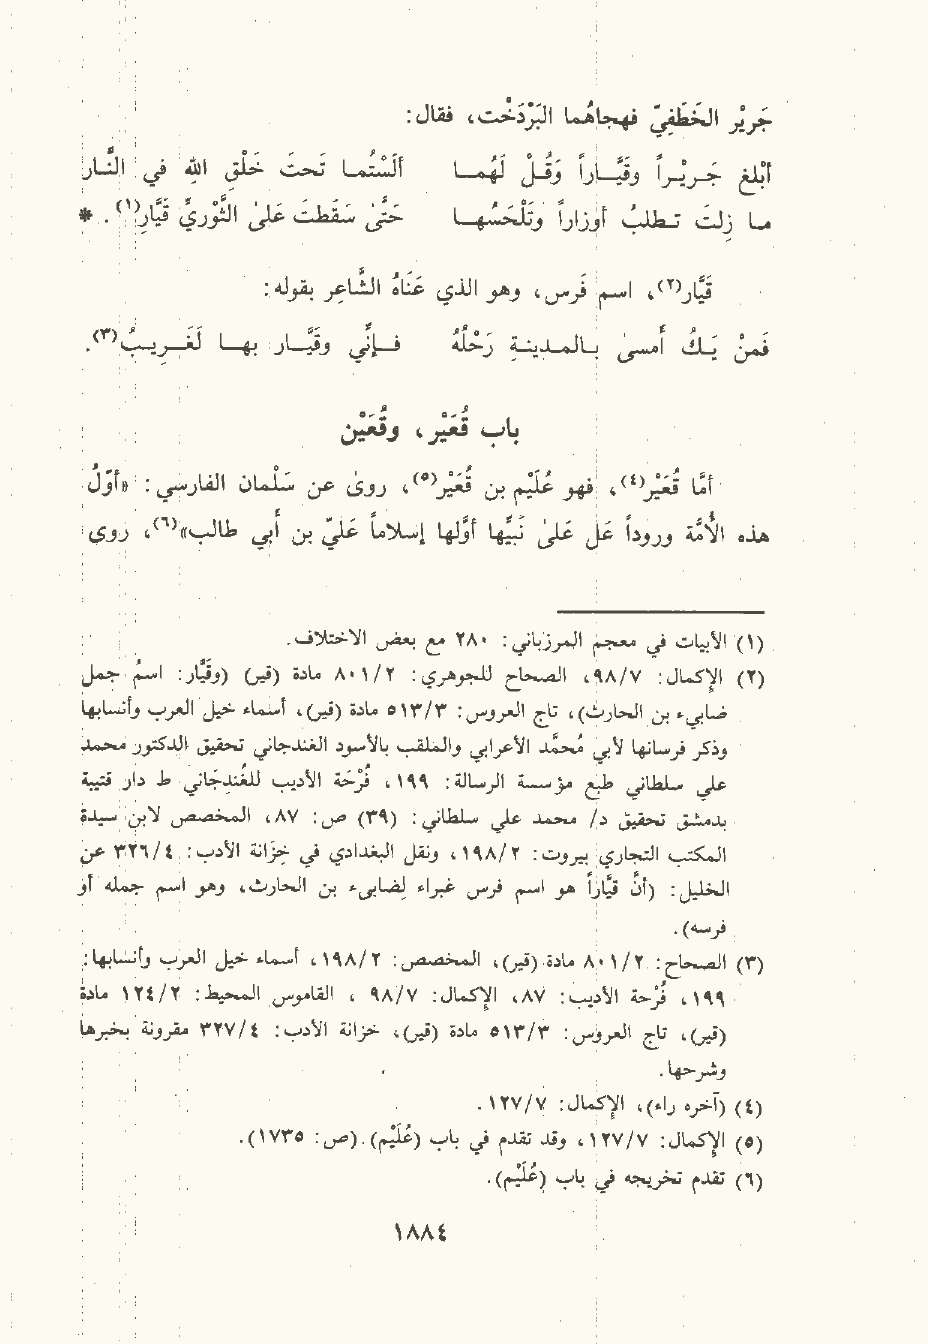 جَريْر الخَطَفِيّ فهجاهُما البَرْدَخْت، فقال:
أبْلغ جَـريْـراً وقَيَّــاراً وَقُـلْ لَهُمــا أَلَسْتُمـا تَحتَ خَلْقِ اللهِ في النَّـار
مـا زِلتَ تـطلبُ أوزاراً وتَلْحَسُهـا حَتُّىٰ سَقَطتَ عَلىٰ الثَّوْريِّ قَيَّارِ(١). *
قَيَّار(٢)، اسم فَرس، وهو الذي عَنَاهُ الشَّاعِر بقوله:
فَمنْ يَـكُ أَمسىٰ بـالمـدينـةِ رَحْلُهُ فــإنِّي وقَيَّــار بهــا لَغَــرِيــبُ(٣).
باب قُعَيْر، وقُعَيْن
أمَّا قُعَيْر(٤)، فهو عُلَيْم بن قُعَيْر(٥)، روىٰ عن سَلْمان الفارسي: «أوّلُ
هذه الأُمَّة وروداً عَل عَلىٰ نَبيِّها أوَّلها إسلاماً عَليّ بن أَبي طالب»(٦)، روى
(١) الأبيات في معجم المرزباني: ٢٨٠ مع بعض الاختلاف.
(٢) الإكمال: ٩٨/٧، الصحاح للجوهري: ٨٠١/٢ مادة (قير) (وقيَّار: اسمُ جمل
ضابيء بن الحارث)، تاج العروس: ٥١٣/٣ مادة (قير)، أسماء خيل العرب وأنسابها
وذكر فرسانها لأبي مُحمَّد الأعرابي والملقب بالأسود الغندجاني تحقيق الدكتور محمد
علي سلطاني طبع مؤسسة الرسالة: ١٩٩، فُرْحَة الأديب للغُندِجَاني ط دار قتيبة
بدمشق تحقيق د/ محمد علي سلطاني: (٣٩) ص: ٨٧، المخصص لابن سيدة
المكتب التجاري بيروت: ١٩٨/٢، ونقل البغدادي في خِزانة الأدب: ٣٢٦/٤ عن
الخليل: (أنَّ قيَّاراً هو اسم فرس غبراء لِضابىء بن الحارث، وهو اسم جمله أو
فرسه).
(٣) الصحاح: ٨٠١/٢ مادة (قير)، المخصص: ١٩٨/٢، أسماء خيل العرب وأنسابها:
١٩٩، فُرْحة الأديب: ٨٧، الإكمال: ٩٨/٧ ، القاموس المحيط: ١٢٤/٢ مادة
(قير)، تاج العروس: ٥١٣/٣ مادة (قير)، خزانة الأدب: ٣٢٧/٤ مقرونة بخبرها
وشرحها.
(٤) (آخره راء)، الإكمال: ١٢٧/٧.
(٥) الإكمال: ١٢٧/٧، وقد تقدم في باب (عُلَيْم).(ص: ١٧٣٥).
(٦) تقدم تخريجه في باب (عُلَيْم).
١٨٨٤